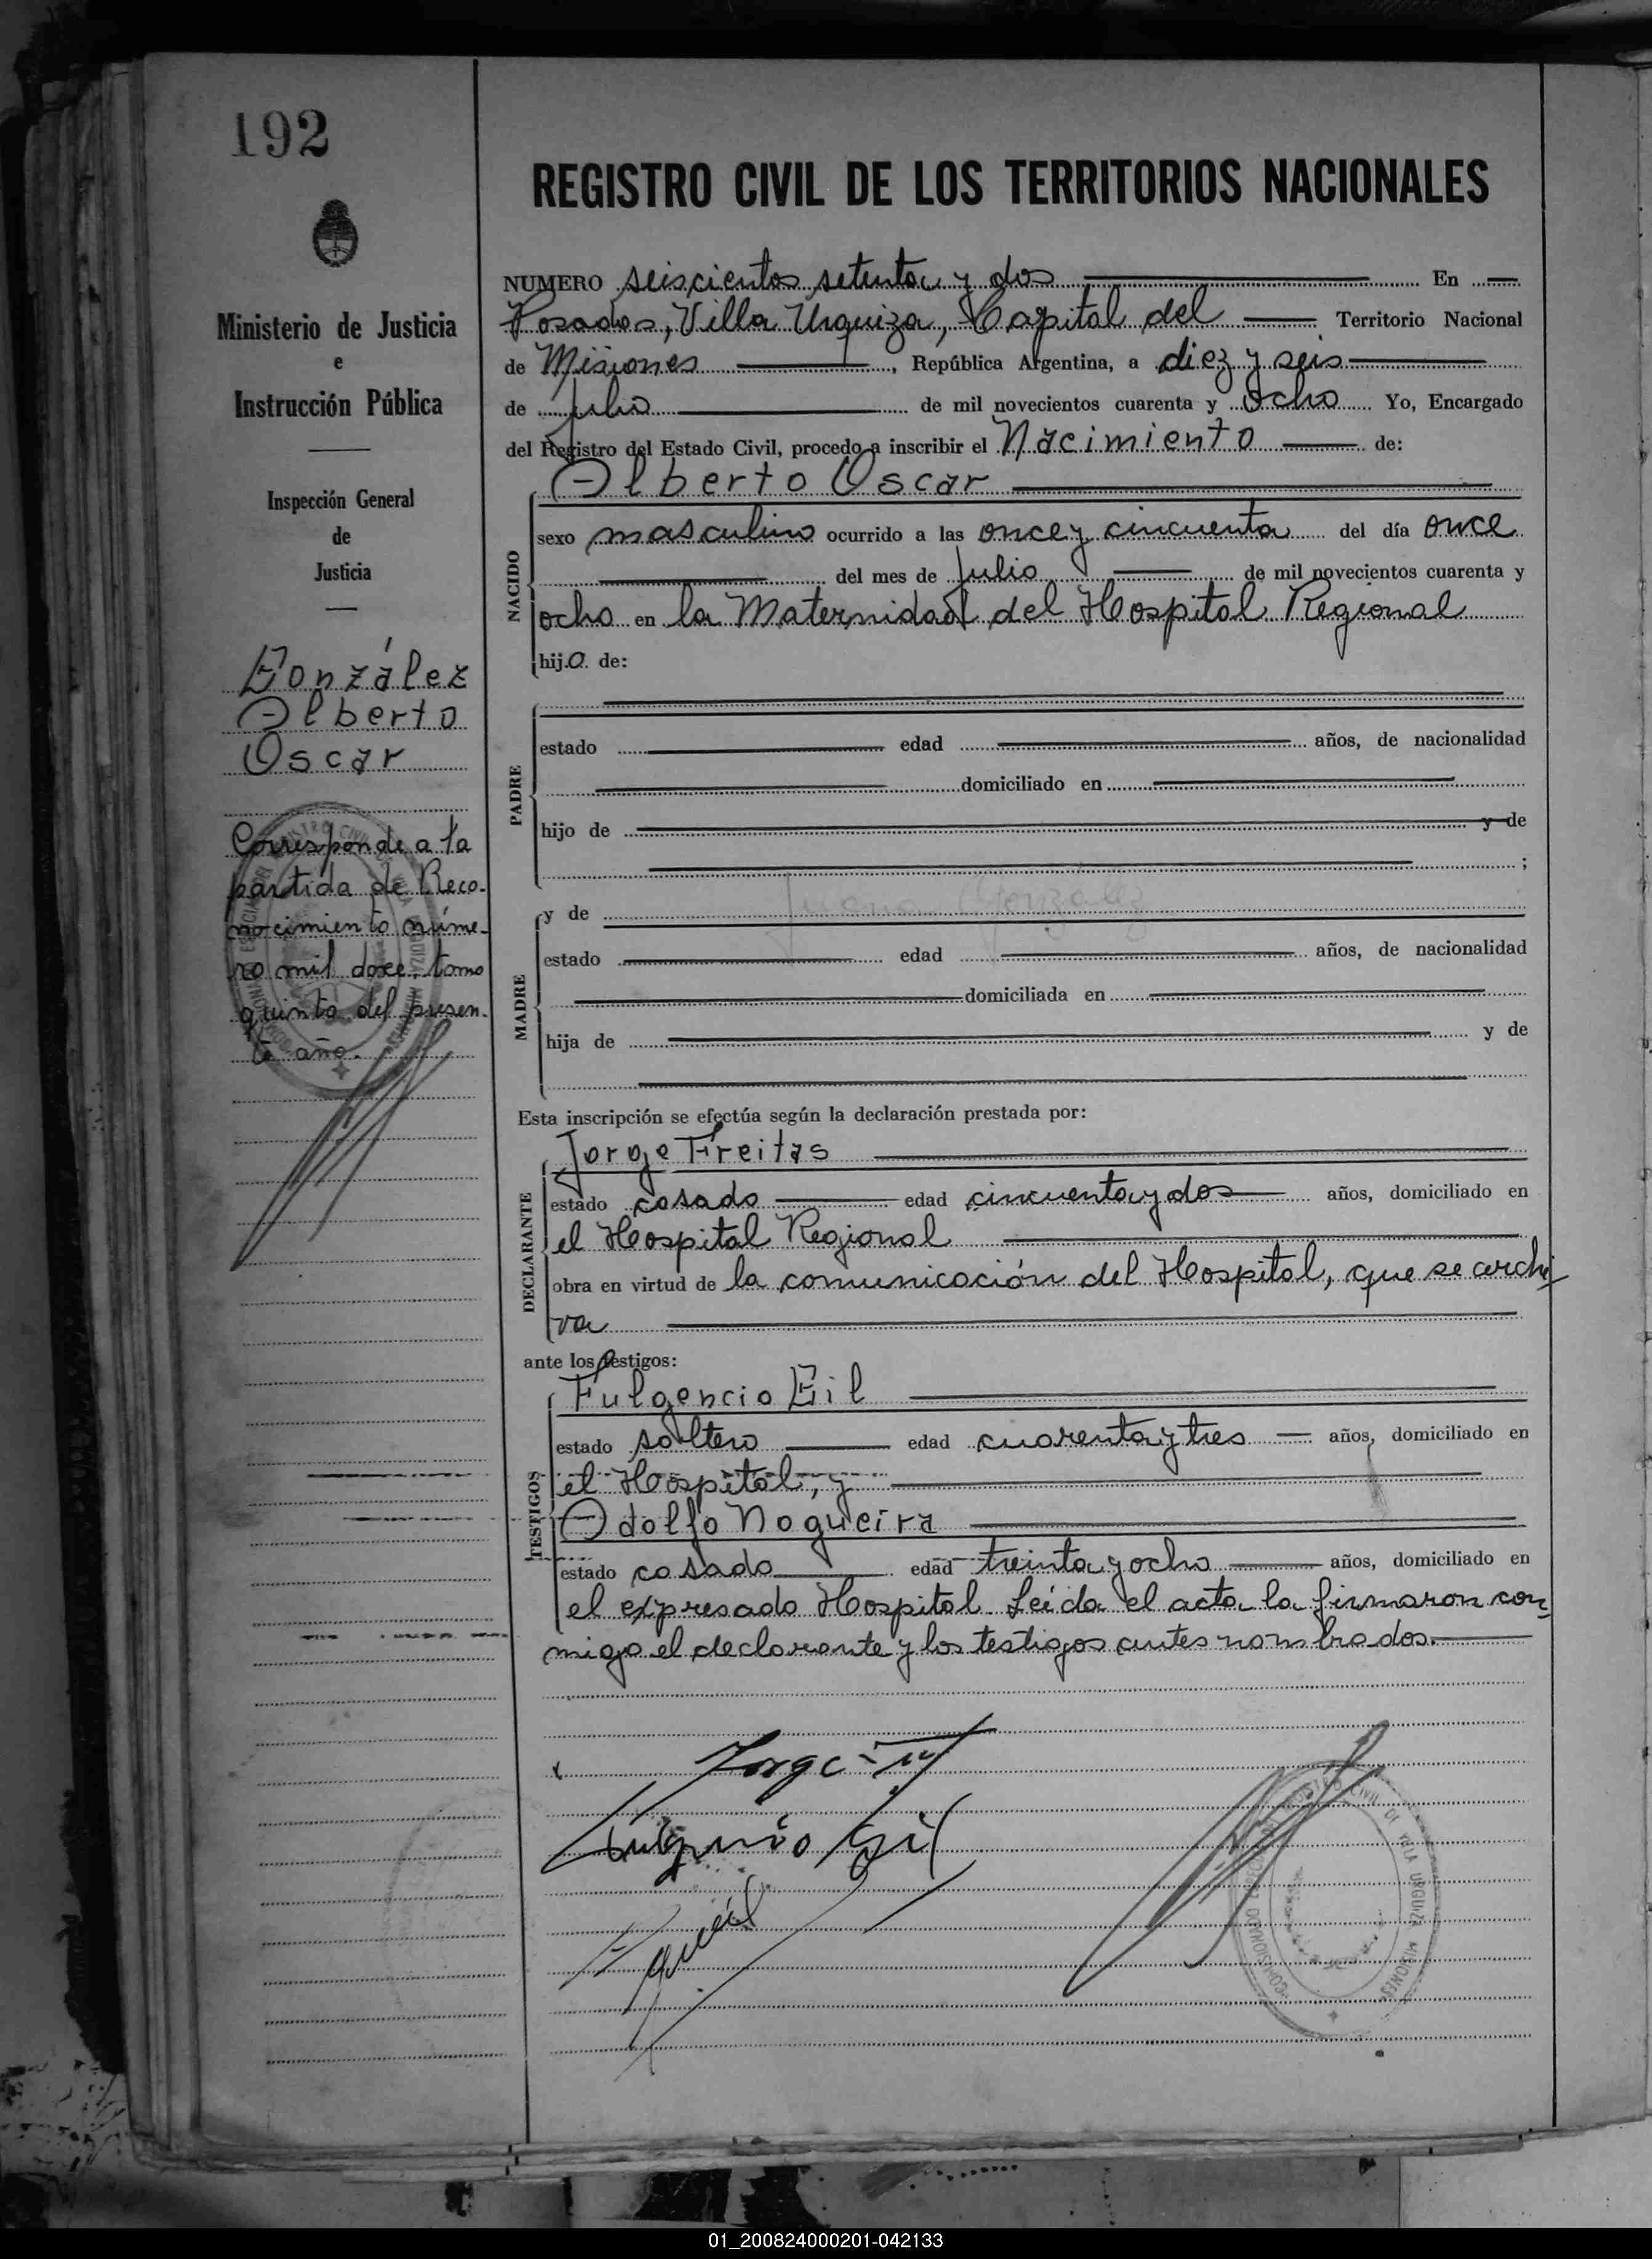 192
Ministerio de Justicia
e
Instrucción Pública
Inspección General
de
Justicia
González
Alberto
Oscar
Corresponde a la
partida de Reco-
nocimiento núme-
ro mil doce, tomo
quinto del presen-
te año.
REGISTRO CIVIL DE LOS TERRITORIOS NACIONALES
NUMERO seiscientos setenta y dos En
Posadas, Villa Urquiza, Capital del Territorio Nacional
de Misiones, República Argentina, a diez y seis
de julio de mil novecientos cuarenta y ocho Yo, Encargado
del Registro del Estado Civil, procedo a inscribir el Nacimiento de:
Alberto Oscar
NACIDO
sexo masculino ocurrido a las once y cincuenta del día once
del mes de julio de mil novecientos cuarenta y
ocho en la Maternidad del Hospital Regional
hijo de:
PADRE
estado edad años, de nacionalidad
domiciliado en
hijo de y de
;
MADRE
y de Juana González
estado edad años, de nacionalidad
domiciliada en
hija de y de
Esta inscripción se efectúa según la declaración prestada por:
DECLARANTE
Jorge Freitas
estado casado edad cincuenta y dos años, domiciliado en
el Hospital Regional
obra en virtud de la comunicación del Hospital, que se archi
va
ante los testigos:
TESTIGOS
Fulgencio Gil
estado soltero edad cuarenta y tres años, domiciliado en
el Hospital, y
Adolfo Nogueira
estado casado edad treinta y ocho años, domiciliado en
el expresado Hospital. Leída el acta la firmaron con
migo el declarante y los testigos antes nombrados.
Jorge
Fulgencio Gil
REGISTRO CIVIL DE VILLA URQUIZA MISIONES
01_200824000201-042133